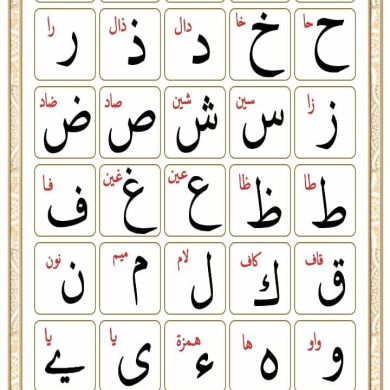 حا ح خا خ دال د ذال ذ را ر
زا ز سين س شين ش صاد ص ضاد ض
طا ط ظا ظ عين ع غين غ فا ف
قاف ق كاف ك لام ل ميم م نون ن
واو و ها ه همزة ء يا ى يا ے